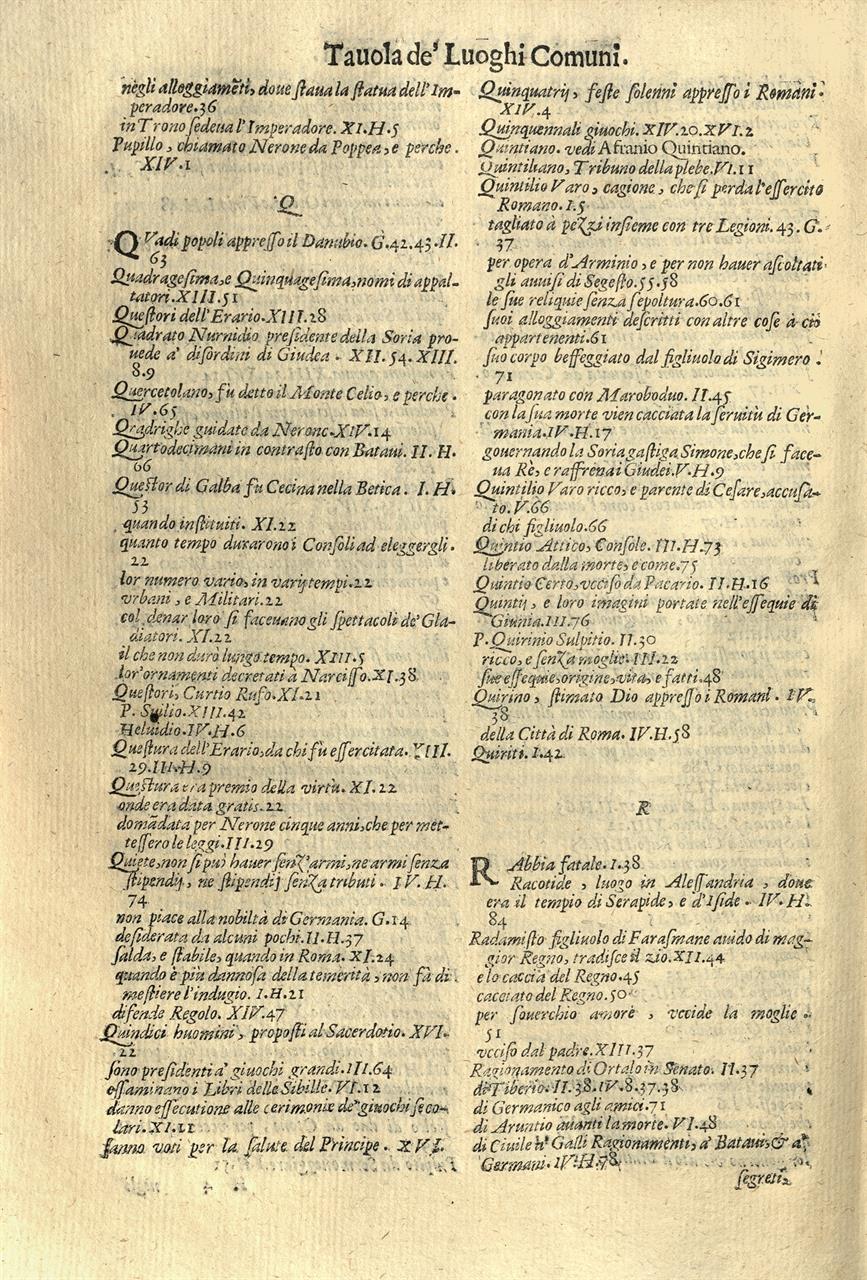 Tauola de' Luoghi Comuni.
negli alloggiamēti, doue staua la statua dell'Im-
peradore.36
in Trono sedeua l'Imperadore. XI.H.5
Pupillo, chiamato Nerone da Poppea, e perche.
XIV.1
Q
QVadi popoli appresso il Danubio. G.42.43.II.
63
Quadragesima, e Quinquagesima, nomi di appal-
tatori.XIII.51
Questori dell'Erario.XIII.28
Quadrato Nurnidio presidente della Soria pro-
uede a' disordini di Giudea. XII.54.XIII.
8.9
Quercetolano, fù detto il Monte Celio, e perche.
IV.65
Qradrighe guidate da Nerone.XIV.14
Quartodecimani in contrasto con Bataui. II. H.
66
Questor di Galba fu Cecina nella Betica. I. H.
53
quando instituiti. XI.22
quanto tempo durarono i Consoli ad eleggergli.
22
lor numero vario, in varij tempi.22
vrbani, e Militari.22
col denar loro si faceuano gli spettacoli de' Gla-
diatori. XI.22
il che non durò lungo tempo. XIII.5
lor'ornamenti decretati à Narcisso.XI.38
Questori, Curtio Rufo.XI.21
P. Suilio.XIII.42
Heluidio.IV.H.6
Questura dell'Erario, da chi fù essercitata. XIII.
29.III.H.9
Questura era premio della virtù. XI.22
onde era data gratis.22
domādata per Nerone cinque anni, che per met-
tessero le leggi.III.29
Quiete, non si può hauer senz'armi, ne armi senza
stipendij, ne stipendij senza tributi. IV. H.
74
non piace alla nobiltà di Germania. G.14
desiderata da alcuni pochi.II.H.37
salda, e stabile, quando in Roma. XI.24
quando è più dannosa della temerità, non fà di
mestiere l'indugio. I.H.21
difende Regolo. XIV.47
Quindici huomini, proposti al Sacerdotio. XVI.
22
sono presidenti a' giuochi grandi.III.64
essaminano i Libri delle Sibille. VI.12
danno essecutione alle cerimonie de' giuochi seco-
lari.XI.11
fanno voti per la salute del Principe. XVI.
Quinquatrij, feste solenni appresso i Romani.
XIV.4
Quinquennali giuochi. XIV.20.XVI.2
Quintiano. vedi Afranio Quintiano.
Quintiliano, Tribuno della plebe.VI.11
Quintilio Varo, cagione, che si perda l'essercito
Romano. I.5
tagliato à pezzi insieme con tre Legioni. 43. G.
37
per opera d'Arminio, e per non hauer ascoltati
gli auuisi di Segesto.55.58
le sue reliquie senza sepoltura.60.61
suoi alloggiamenti descritti con altre cose à ciò
appartenenti.61
suo corpo beffeggiato dal figliuolo di Sigimero.
71
paragonato con Maroboduo. II.45
con la sua morte vien cacciata la seruitù di Ger-
mania.IV.H.17
gouernando la Soria gastiga Simone, che si face-
ua Rè, e raffrena i Giudei.V.H.9
Quintilio Varo ricco, e parente di Cesare, accusa-
to. V.66
di chi figliuolo.66
Quintio Attico, Console. III.H.73
liberato dalla morte, e come.75
Quintio Certo, vcciso da Pacario. II.H.16
Quintij, e loro imagini portate nell'essequie di
Giunia.III.76
P. Quirinio Sulpitio. II.30
ricco, e senza moglie. III.22
sue essequie, origine, vita, e fatti.48
Quirino, stimato Dio appresso i Romani. IV.
38
della Città di Roma. IV.H.58
Quiriti. I.42
R
RAbbia fatale. I.38
Racotide, luogo in Alessandria, doue
era il tempio di Serapide, e d'Iside. IV. H.
84
Radamisto figliuolo di Farasmane auido di mag-
gior Regno, tradisce il zio.XII.44
e lo caccia del Regno.45
cacciato del Regno.50
per souerchio amore, vccide la moglie.
51
vcciso dal padre.XIII.37
Ragionamento di Ortalo in Senato. II.37
di Tiberio. II.38.IV.8.37.38
di Germanico agli amici.71
di Aruntio auanti la morte. VI.48
di Ciuile a' Galli Ragionamenti, a' Bataui, & a'
Germani. IV.H.78
segreti